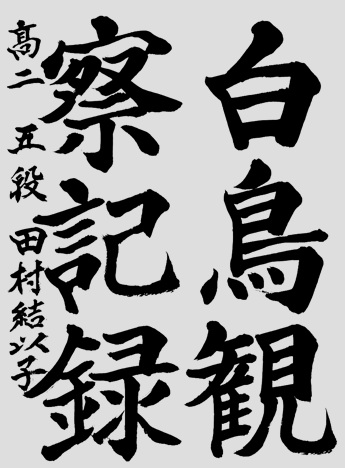 白鳥観
察記録
髙二 五段 田村結以子